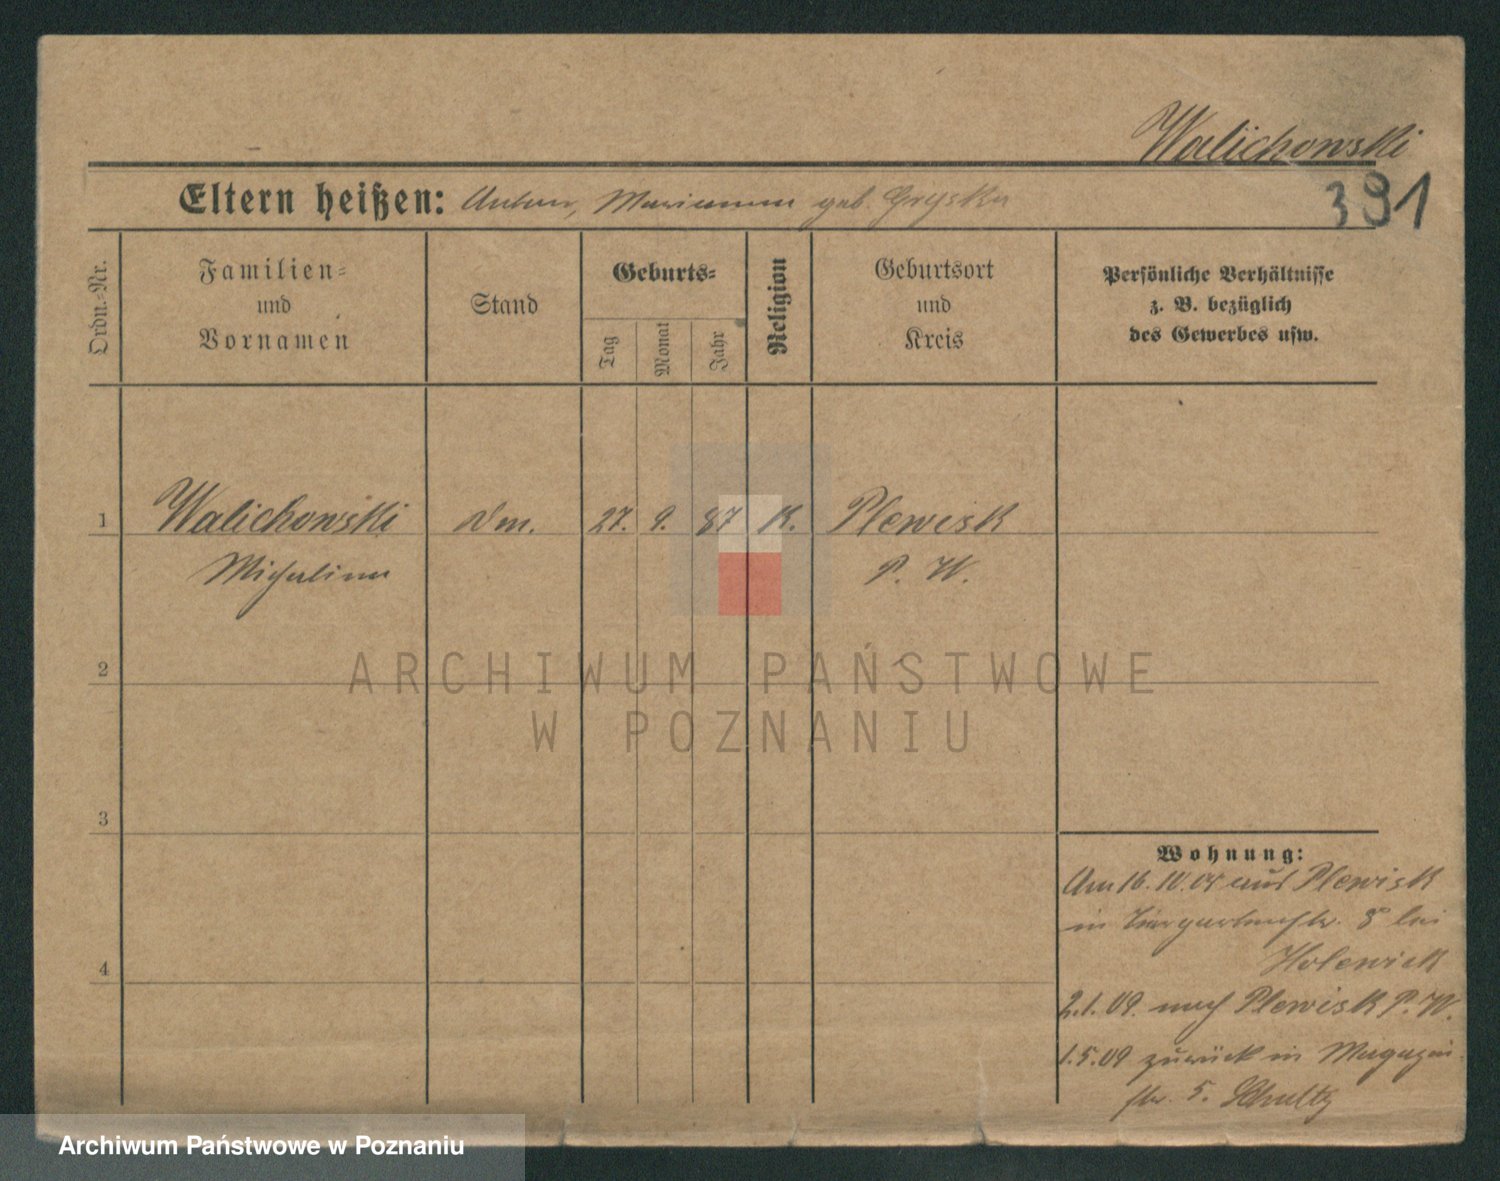 Walichowski
391
Eltern heißen: Anton, Marianna geb. Gryska
Ordn.-Nr.
Familien-
und
Vornamen
Stand
Geburts-
Tag
Monat
Jahr
Religion
Geburtsort
und
Kreis
Persönliche Verhältnisse
z. B. bezüglich
des Gewerbes usw.
1 Walichowski 27. 9. 87 K. Plewisk
Michalina P. W.
2
3
4
Wohnung:
Am 16. 10. aus Plewisk
in Tiergartenstr. 8 bei
Holewick
2.1.09. nach Plewisk P. W.
1.5.09 zurück in Magazin-
str. 5. Schultz
ARCHIWUM PAŃSTWOWE
W POZNANIU
Archiwum Państwowe w Poznaniu